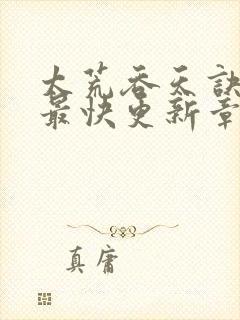 大荒吞天訣
最快更新章
真庸